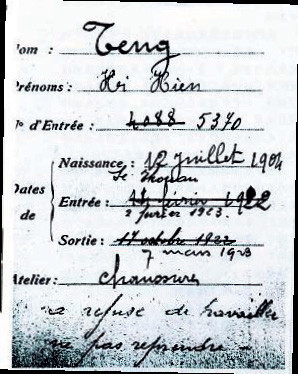 Nom : Teng
Prénoms : Hi Hien
N° d'Entrée : 4088 5370
Naissance : 12 juillet 1904
Dates de
Entrée : 1922
2 fevrier 1923.
Sortie : 17 octobre 1922
7 mars 1923
Atelier : chaussures
a refusé de travailler
ne pas reprendre -